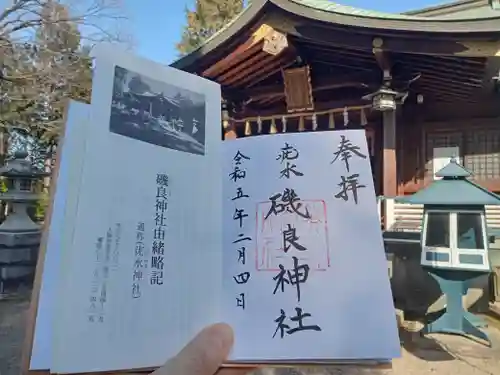 奉拝
疣水
磯良神社
令和五年二月四日
磯良神社由緒略記
通称(疣水神社)